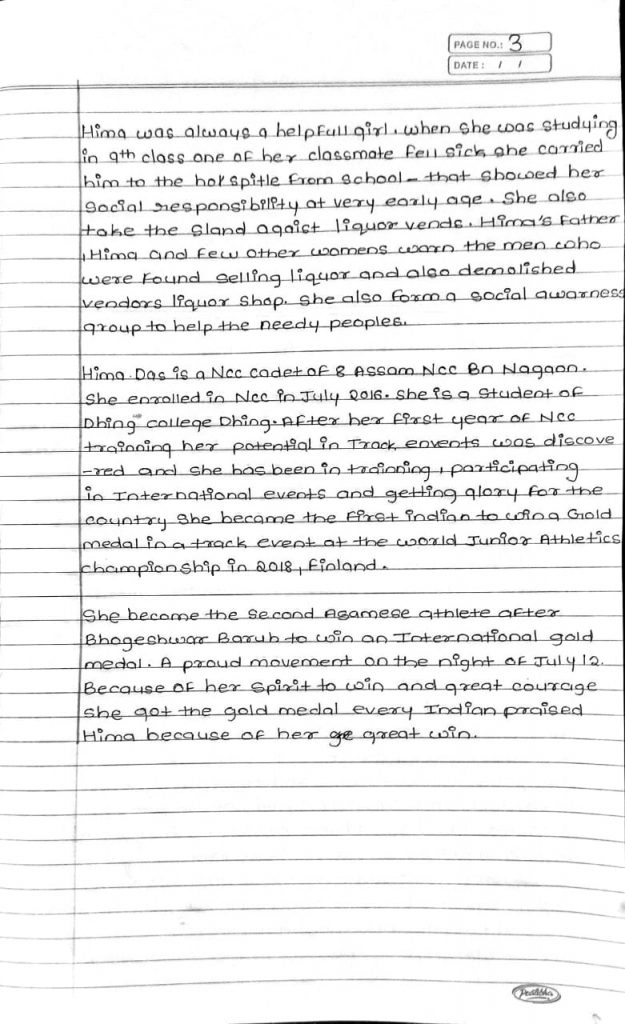 PAGE NO.: 3
DATE: / /
Hima was always a helpfull girl. when she was studying
in 9th class one of her classmate fell sick she carried
him to the hospitle from school - that showed her
social responsibility at very early age. she also
take the sland agaist liquor vends. Hima's father
, Hima and few other womens warn the men who
were found selling liquor and also demolished
vendors liquor shop. she also form a social awarness
group to help the needy peoples.
Hima Das is a Ncc cadet of 8 Assam Ncc Bn Nagaon.
she enrolled in Ncc in July 2016. she is a student of
Dhing college Dhing. After her first year of Ncc
trainning her potential in Track envents was discove
-red and she has been in trainning, participating
in International events and getting glory for the
country she became the first indian to win a Gold
medal in a track event at the world Junior Athletics
championship in 2018, Finland.
She become the second Asamese athlete after
Bhogeshwar Baruh to win an International gold
medal. A proud movement on the night of July 12.
Because of her spirit to win and great courage
she got the gold medal every Indian praised
Hima because of her great win.
Pratibha